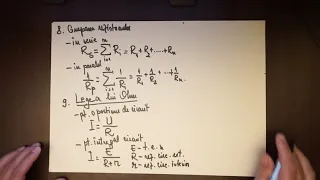 8. Gruparea rezistoarelor
- în serie
R_s = \sum_{i=1}^{n} R_i = R_1 + R_2 + ..... + R_n
- în paralel
\frac{1}{R_p} = \sum_{i=1}^{n} \frac{1}{R_i} = \frac{1}{R_1} + \frac{1}{R_2} + ... + \frac{1}{R_n}
9. Legea lui Ohm
- pt. o porțiune de circuit
I = \frac{U}{R}
- pt. întregul circuit
I = \frac{E}{R+r}
E - t.e.m
R - rez. circ. ext.
r - rez. circ. interior